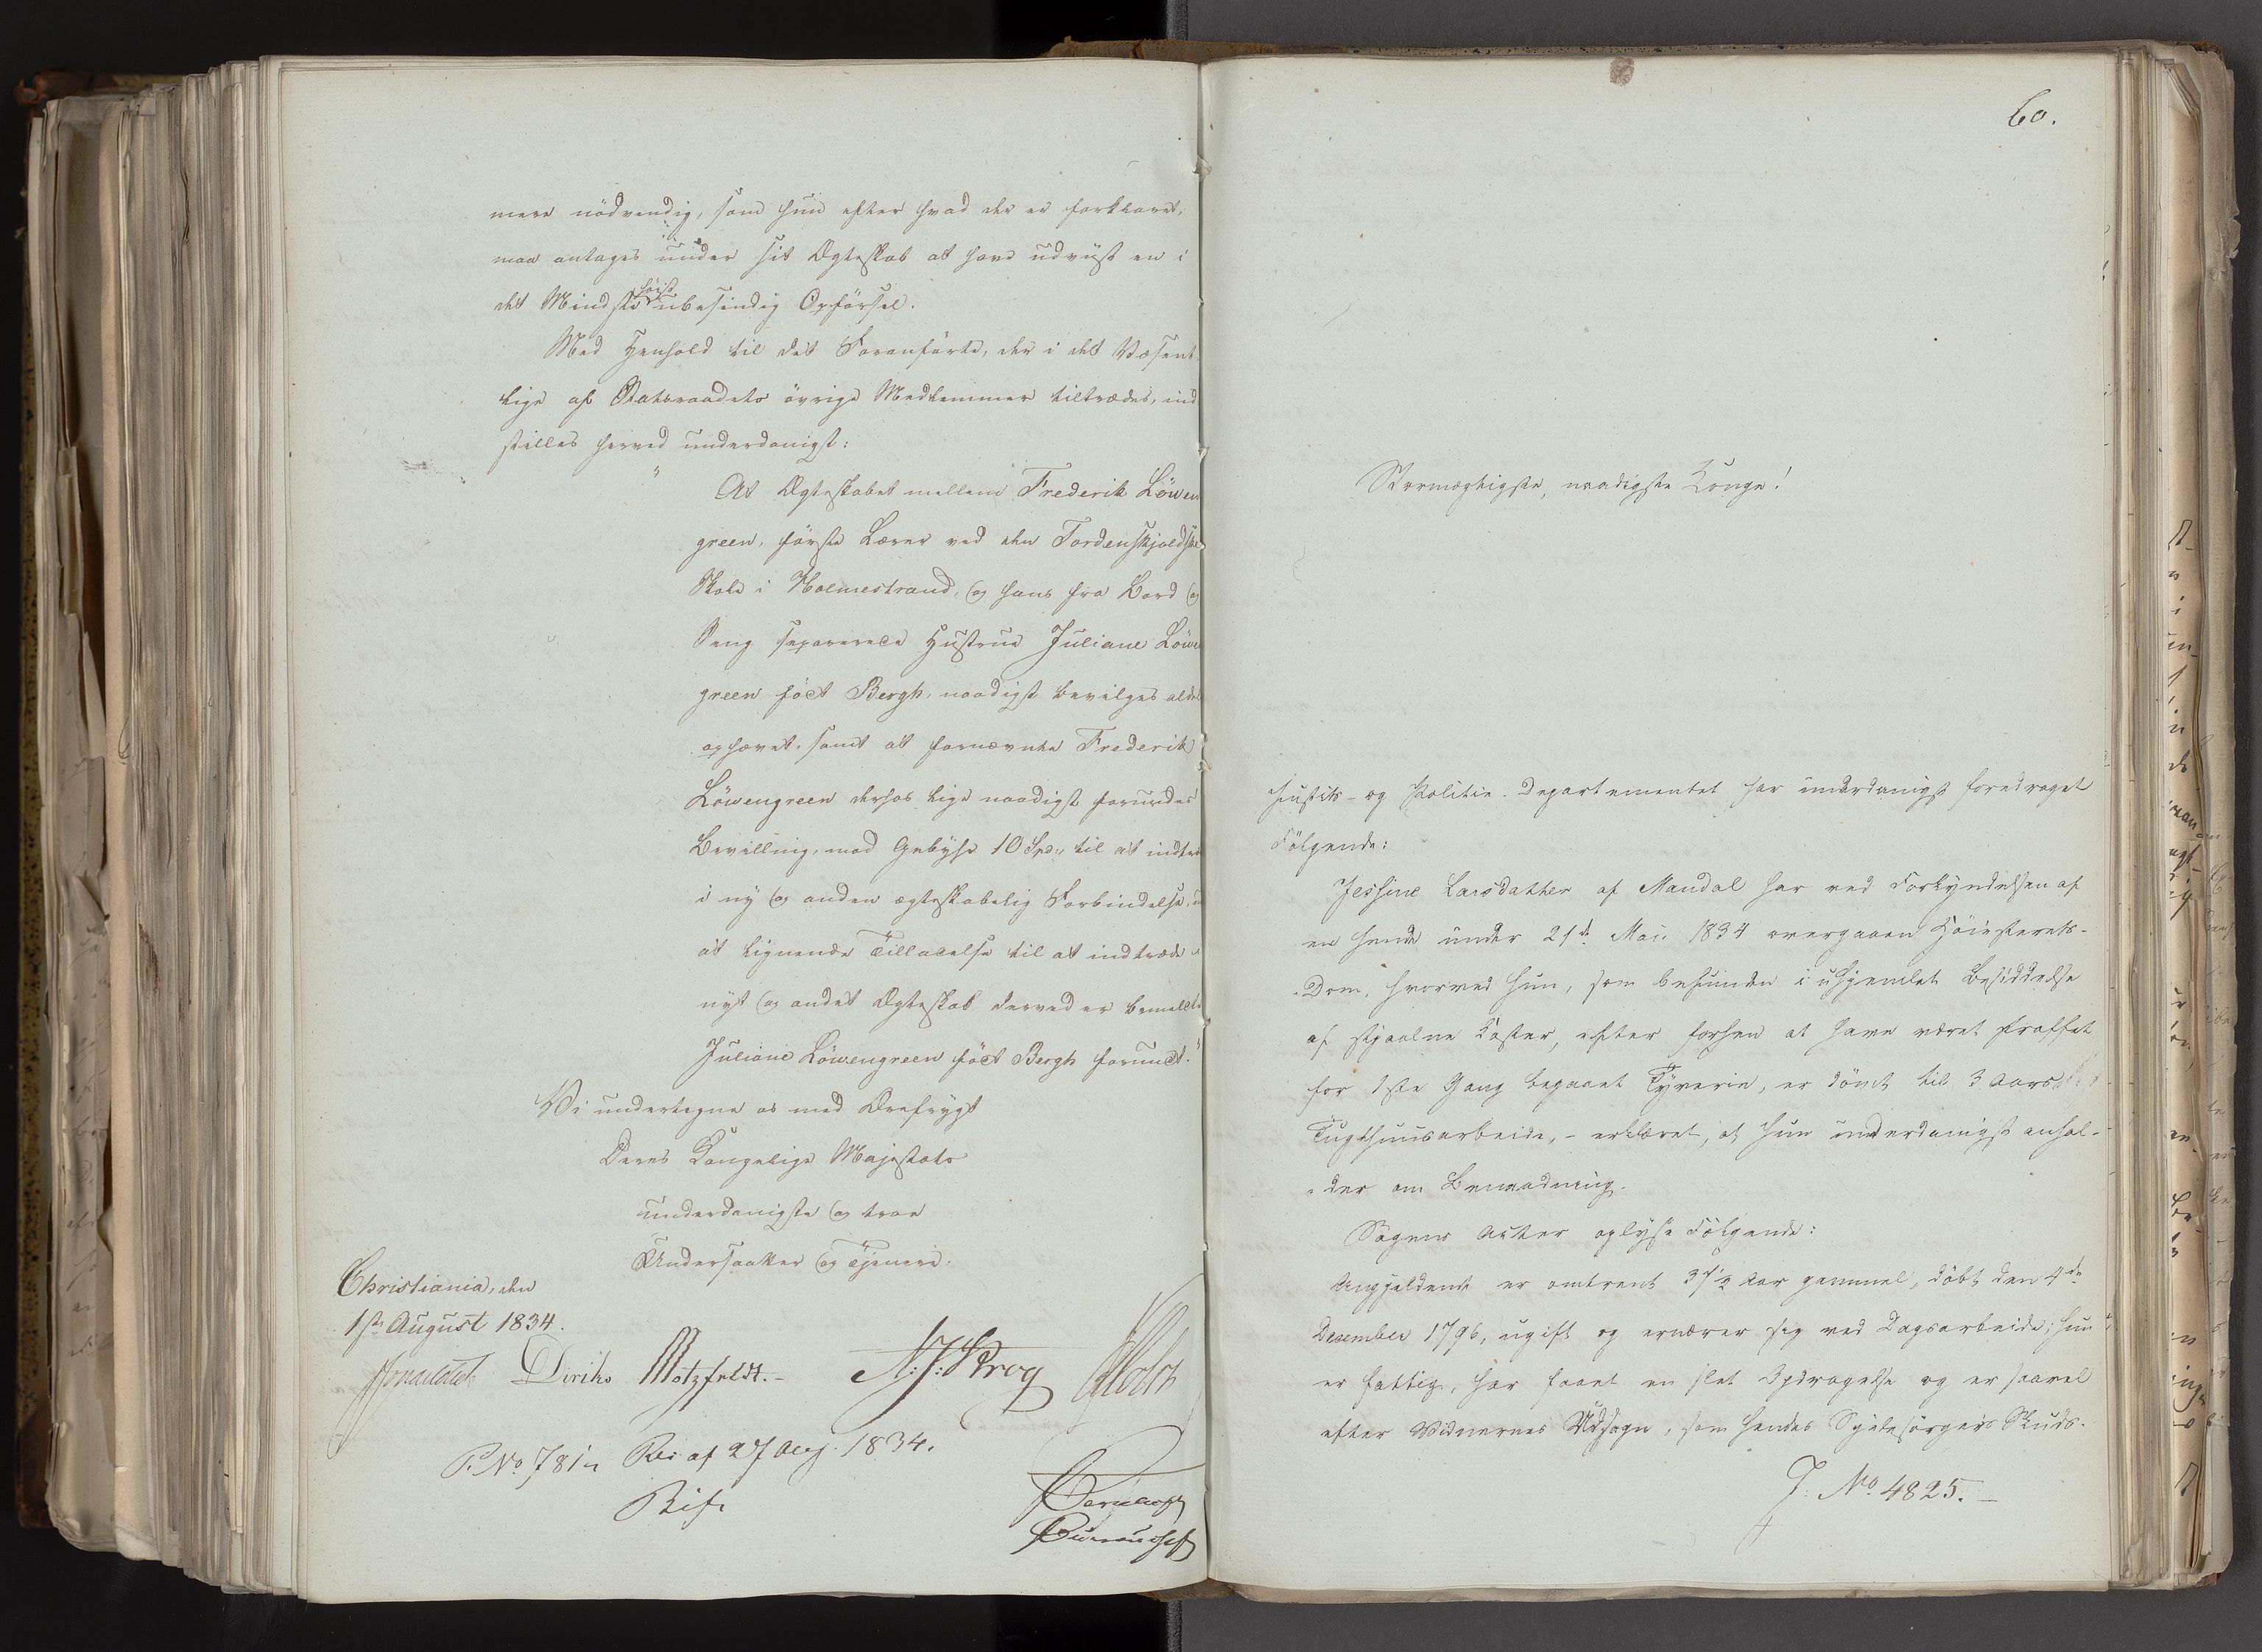 mere nödvendig, som hun efter hvad der er forklaret,
maa antages under sit Ægteskab at have udviist en i
det Mindste höist ubesindig Opförsel.
Med Henhold til det Foranförte, der i det Væsent
lige af Statsraadets övrige Medlemmer tiltrædes, ind
stilles herved underdanigst:
" At Ægteskabet mellem Frederik Löwen
green, förste Lærer ved den Tordenskjoldske
Skole i Holmestrand, og hans fra Bord og
Seng separerede Hustrue Juliane Löwen
green födt Bergh, naadigst bevilges aldeles
ophævet, samt at fornævnte Frederik
Löwengreen derhos lige naadigst forundes
Bevilling, mod Gebyhr 10 Spd:, til at indtræde
i ny og anden ægteskabelig Forbindelse,
at lignende Tilladelse til at indtræde i
nyt og andet Ægteskab derved er bemeldte
Juliane Löwengreen födt Bergh forundt."
Vi undertegne os med Ærefrygt
Deres Kongelige Majestæts
underdanigste og troe
Undersaatter og Tjenere.
Christiania, den
1ste August 1834.
Diriks Motzfeldt.- N. J. Krog Holst
P. No 781 Res af 27 Aug. 1834.
60.
Stormægtigste, naadigste Konge!
Justits- og Politie-Departementet har underdanigst foredraget
Fölgende:
Jessine Larsdatter af Mandal har ved Forkyndelsen af
en hende under 21de Mai 1834 overgaaen Höiesterets-
Dom, hvorved hun, som befunden i uhjemlet Besiddelse
af stjaalne Koster, efter forhen at have været straffet
for 1ste Gang begaaet Tyverie, er dömt til 3 Aars
Tugthuusarbeide, - erklæret, at hun underdanigst anhol-
der om Benaadning.
Sagens Acter oplyse Fölgende:
Angjeldende er omtrent 37½ Aar gammel, döbt den 4de
December 1796, ugift og ernærer sig ved Dagsarbeide; hun
er fattig, har faaet en slet Opdragelse og er saavel
efter Vidnernes Udsagn, som hendes Sjelesörgers Skuds-
J: No 4825.-